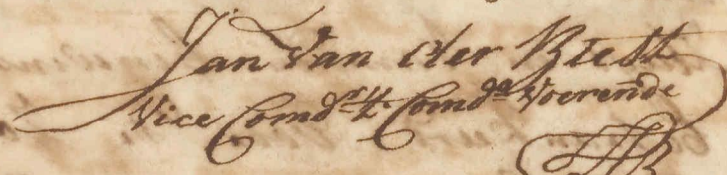 Jan Van der Biest
Vice Comd.r 't Comd.o Voerende